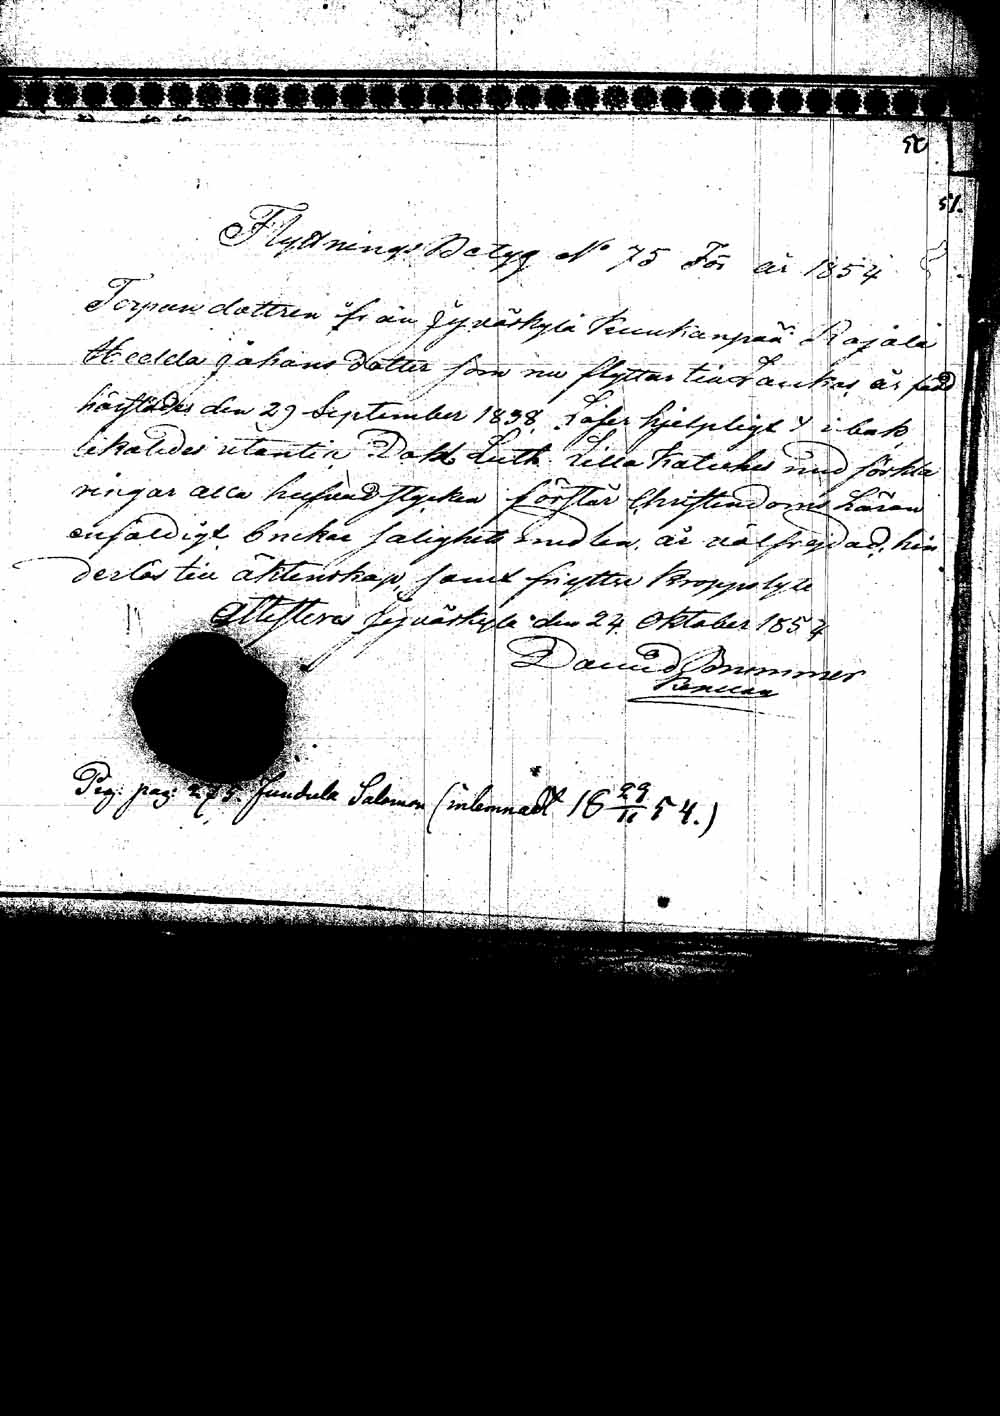 50
51.
Flyttnings Betyg No 75 För år 1854
Torpare dottren från Jyväskylä Kuukanpää Rajala
Hedda Johans dotter som nu flyttar till Laukas är född
härstädes den 29 September 1838, Läser hjelpligt i bok,
likaledes utantill Dokt Luth. Lilla Katechis med förkla
ringar alla hufvudstycken förstår Christendoms Läran
enfaldigt brukar salighets medlen, är välfrejdad, hin
derlös till äktenskap, samt från yttre kroppslyte
Attesteras Jyväskylä den 24 Oktober 1854
David Brummer
Reg: pag: 275. Salomon (inlemnadt 18 29/11 54.)